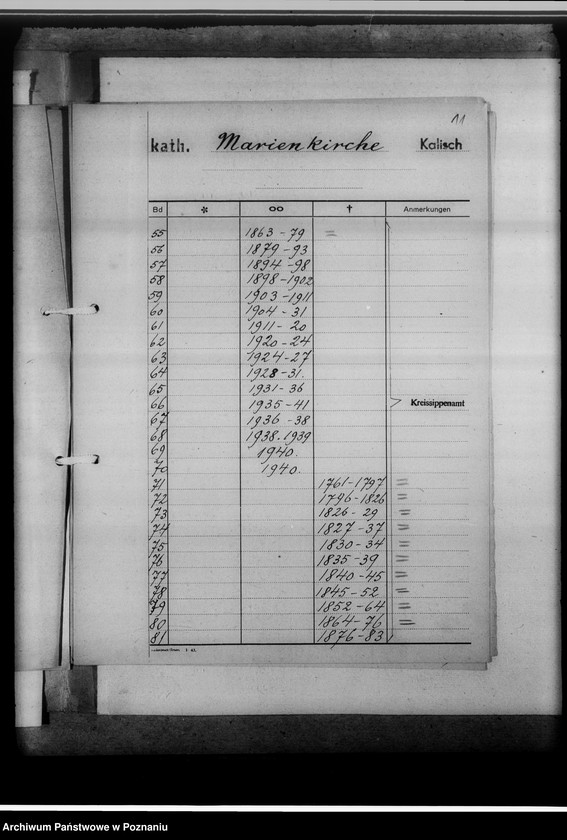 11
kath. Marienkirche Kalisch
Bd * ∞ † Anmerkungen
55 1863-79 =
56 1879-93
57 1894-98
58 1898-1902
59 1903-1911
60 1904-31
61 1911-20
62 1920-24
63 1924-27
64 1928-31.
65 1931-36
66 1935-41 Kreissippenamt
67 1936-38
68 1938.1939
69 1940.
70 1940.
71 1761-1797 =
72 1796-1826 =
73 1826-29 =
74 1827-37 =
75 1830-34 =
76 1835-39 =
77 1840-45 =
78 1845-52 =
79 1852-64 =
80 1864-76 =
81 1876-83
Archiwum Państwowe w Poznaniu